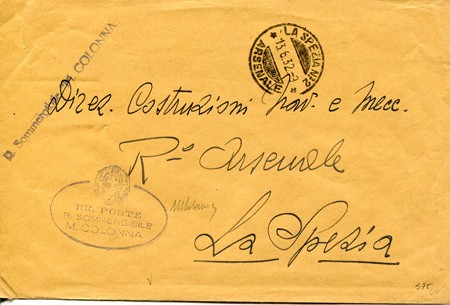 R. Sommergibile M. COLONNA
LA SPEZIA Nº2
13.6.32.-9
* ARSENALE *
Direz. Costruzioni Nav. e Mecc.
Rº Arsenale
La Spezia
RR. POSTE
R. SOMMERGIBILE
M. COLONNA
575